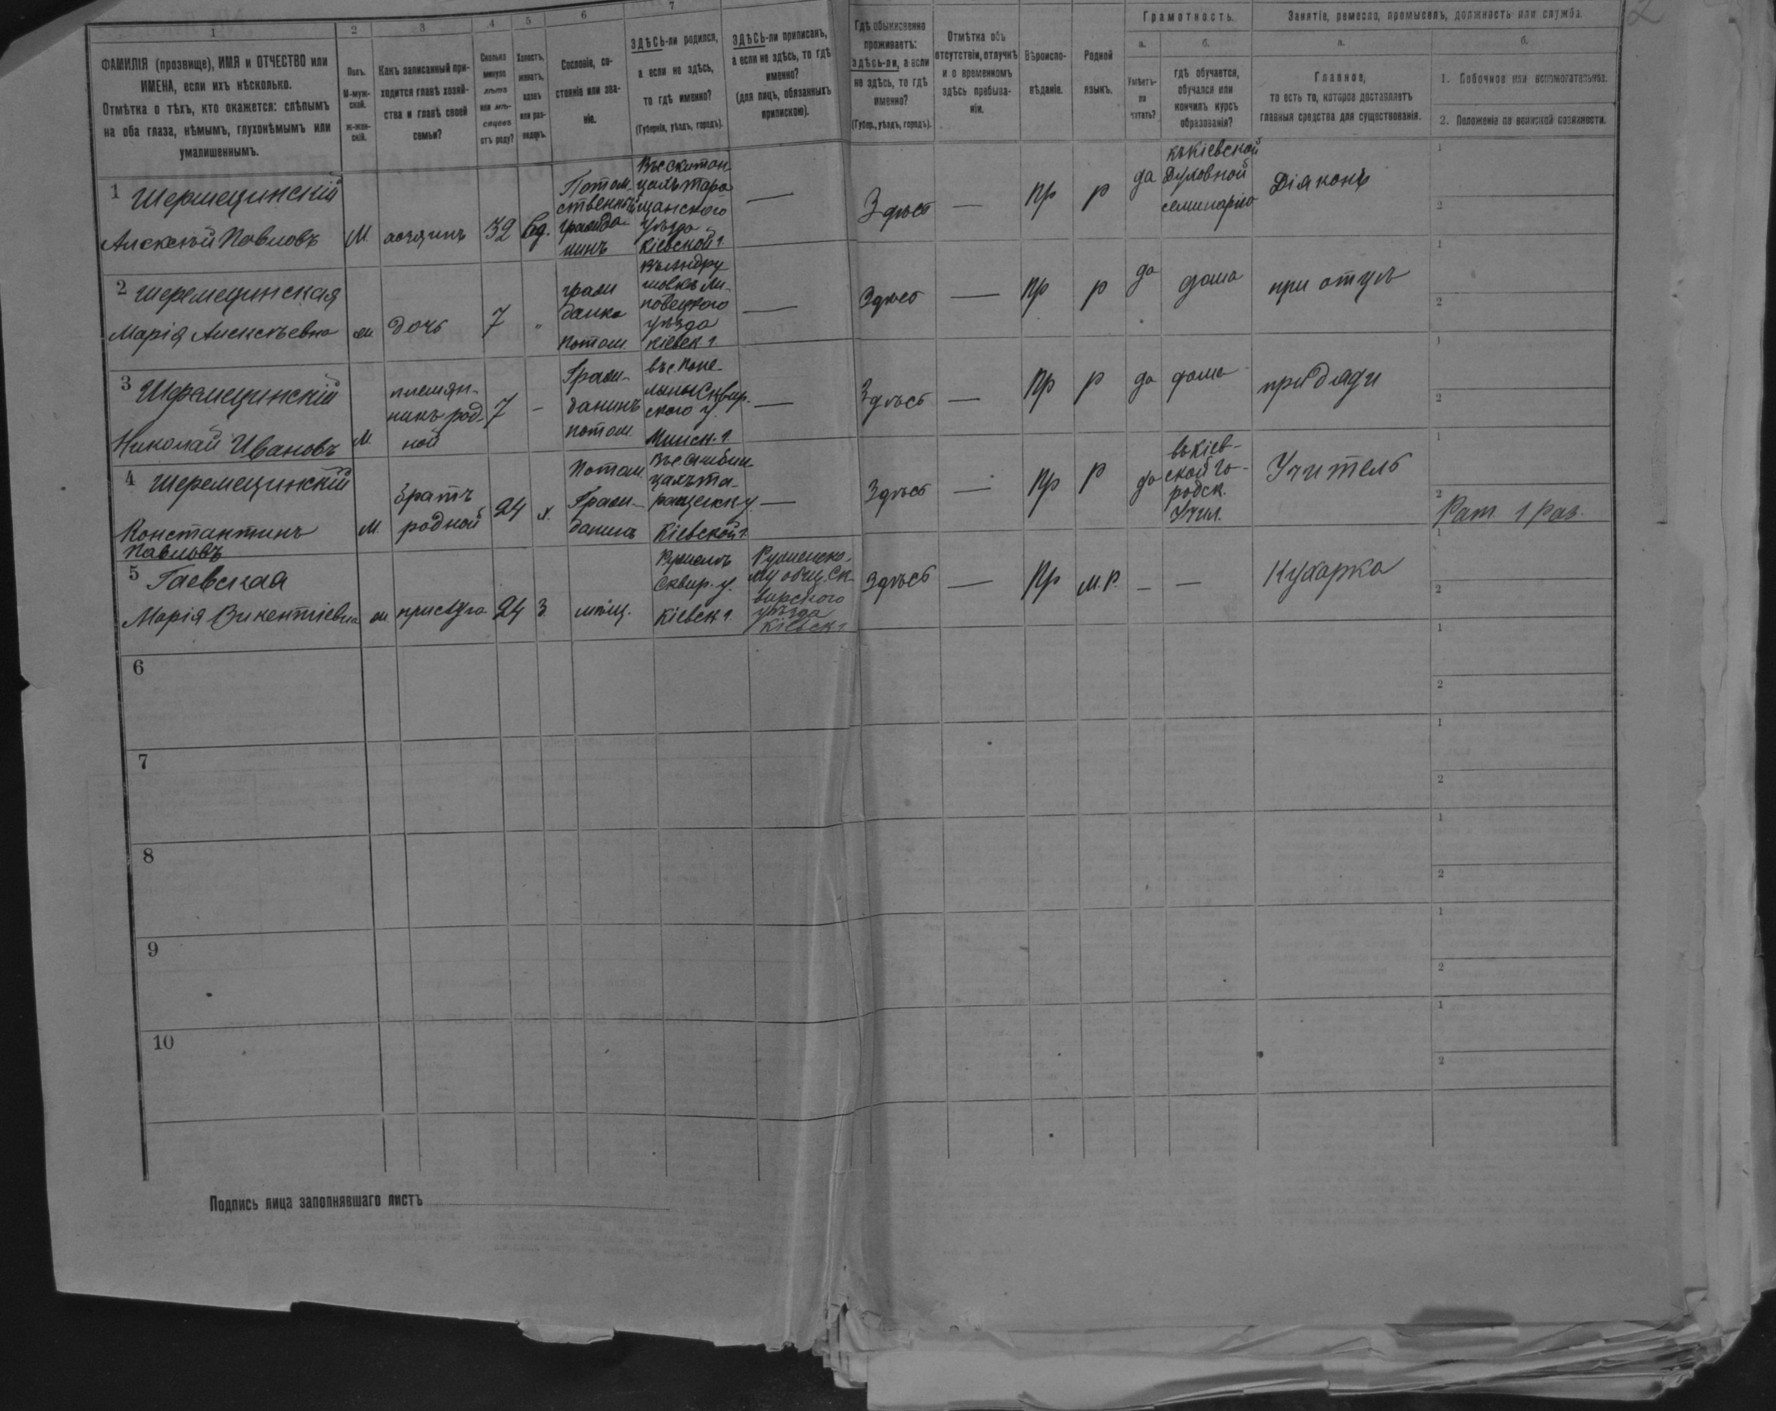 1 2 3 4 5 6 7
ФАМИЛІЯ (прозвище), ИМЯ и ОТЧЕСТВО или
ИМЕНА, если ихъ нѣсколько.
Отмѣтка о тѣхъ, кто окажется: слѣпымъ
на оба глаза, нѣмымъ, глухонѣмымъ или
умалишеннымъ.
Полъ.
М-муж-
ской.
Ж-жен-
скій.
Какъ записанный при-
ходится главѣ хозяй-
ства и главѣ своей
семьи?
Сколько
минуло
лѣтъ
или мѣ-
сяцевъ
отъ роду?
Холостъ,
женатъ,
вдовъ
или раз-
веденъ.
Сословіе, со-
стояніе или зва-
ніе.
ЗДѢСЬ-ли родился,
а если не здѣсь,
то гдѣ именно?
(Губернія, уѣздъ, городъ).
ЗДѢСЬ-ли приписанъ,
а если не здѣсь, то гдѣ
именно?
(для лицъ, обязанныхъ
припискою).
Гдѣ обыкновенно
проживаетъ:
здѣсь-ли, а если
не здѣсь, то гдѣ
именно?
(Губерн., уѣздъ, городъ).
Отмѣтка объ
отсутствіи, отлучкѣ
и о временномъ
здѣсь пребыва-
ніи.
Вѣроиспо-
вѣданіе.
Родной
языкъ.
Грамотность.
а.
Умѣетъ-
ли
читать?
б.
гдѣ обучается,
обучался или
кончилъ курсъ
образованія?
Занятіе, ремесло, промыселъ, должность или служба.
а.
Главное,
то есть то, которое доставляетъ
главныя средства для существованія.
б.
1. Побочное или вспомогательное.
2. Положеніе по воинской повинности.
1 Шермецинскій
Алексѣй Павловъ
М
хозяинъ
32
вд.
Потом-
ственный
гражда-
нинъ
уѣзда
Кіевской г.
—
Здѣсь
—
Пр
Р
да
въ Кіевской
Духовной
семинаріи
Діаконъ
1
2
2 Шеремецинская
Марія Алексѣевна
ж
дочь
7
„
граж
данка
потом
повецкого
уѣзда
Кіевск г
—
Здѣсь
—
Пр
Р
да
дома
при отцѣ
1
2
3 Шеремецинскій
Николай Ивановъ
М
племян-
никъ род-
ной
7
–
Граж-
данинъ
потом
ского у.
—
Здѣсь
—
Пр
Р
да
дома
при дяди
1
2
4 Шеремецинскій
Константинъ
Павловъ
М
братъ
родной
24
х.
Потом
Граж-
данинъ
Кіевской г.
—
Здѣсь
—
Пр
Р
да
въ Кіев-
ской го-
родск.
Учил.
Учитель
1
2
Рат 1 раз.
5 Гаевская
Марія Викентіевна
ж
прислуга
24
З
мѣщ.
Сквир. у.
Кіевск г
вирского
уѣзда
Кіевск г
Здѣсь
—
Пр
М.Р.
–
—
Кухарка
1
2
6
1
2
7
1
2
8
1
2
9
1
2
10
1
2
Подпись лица заполнявшаго листъ